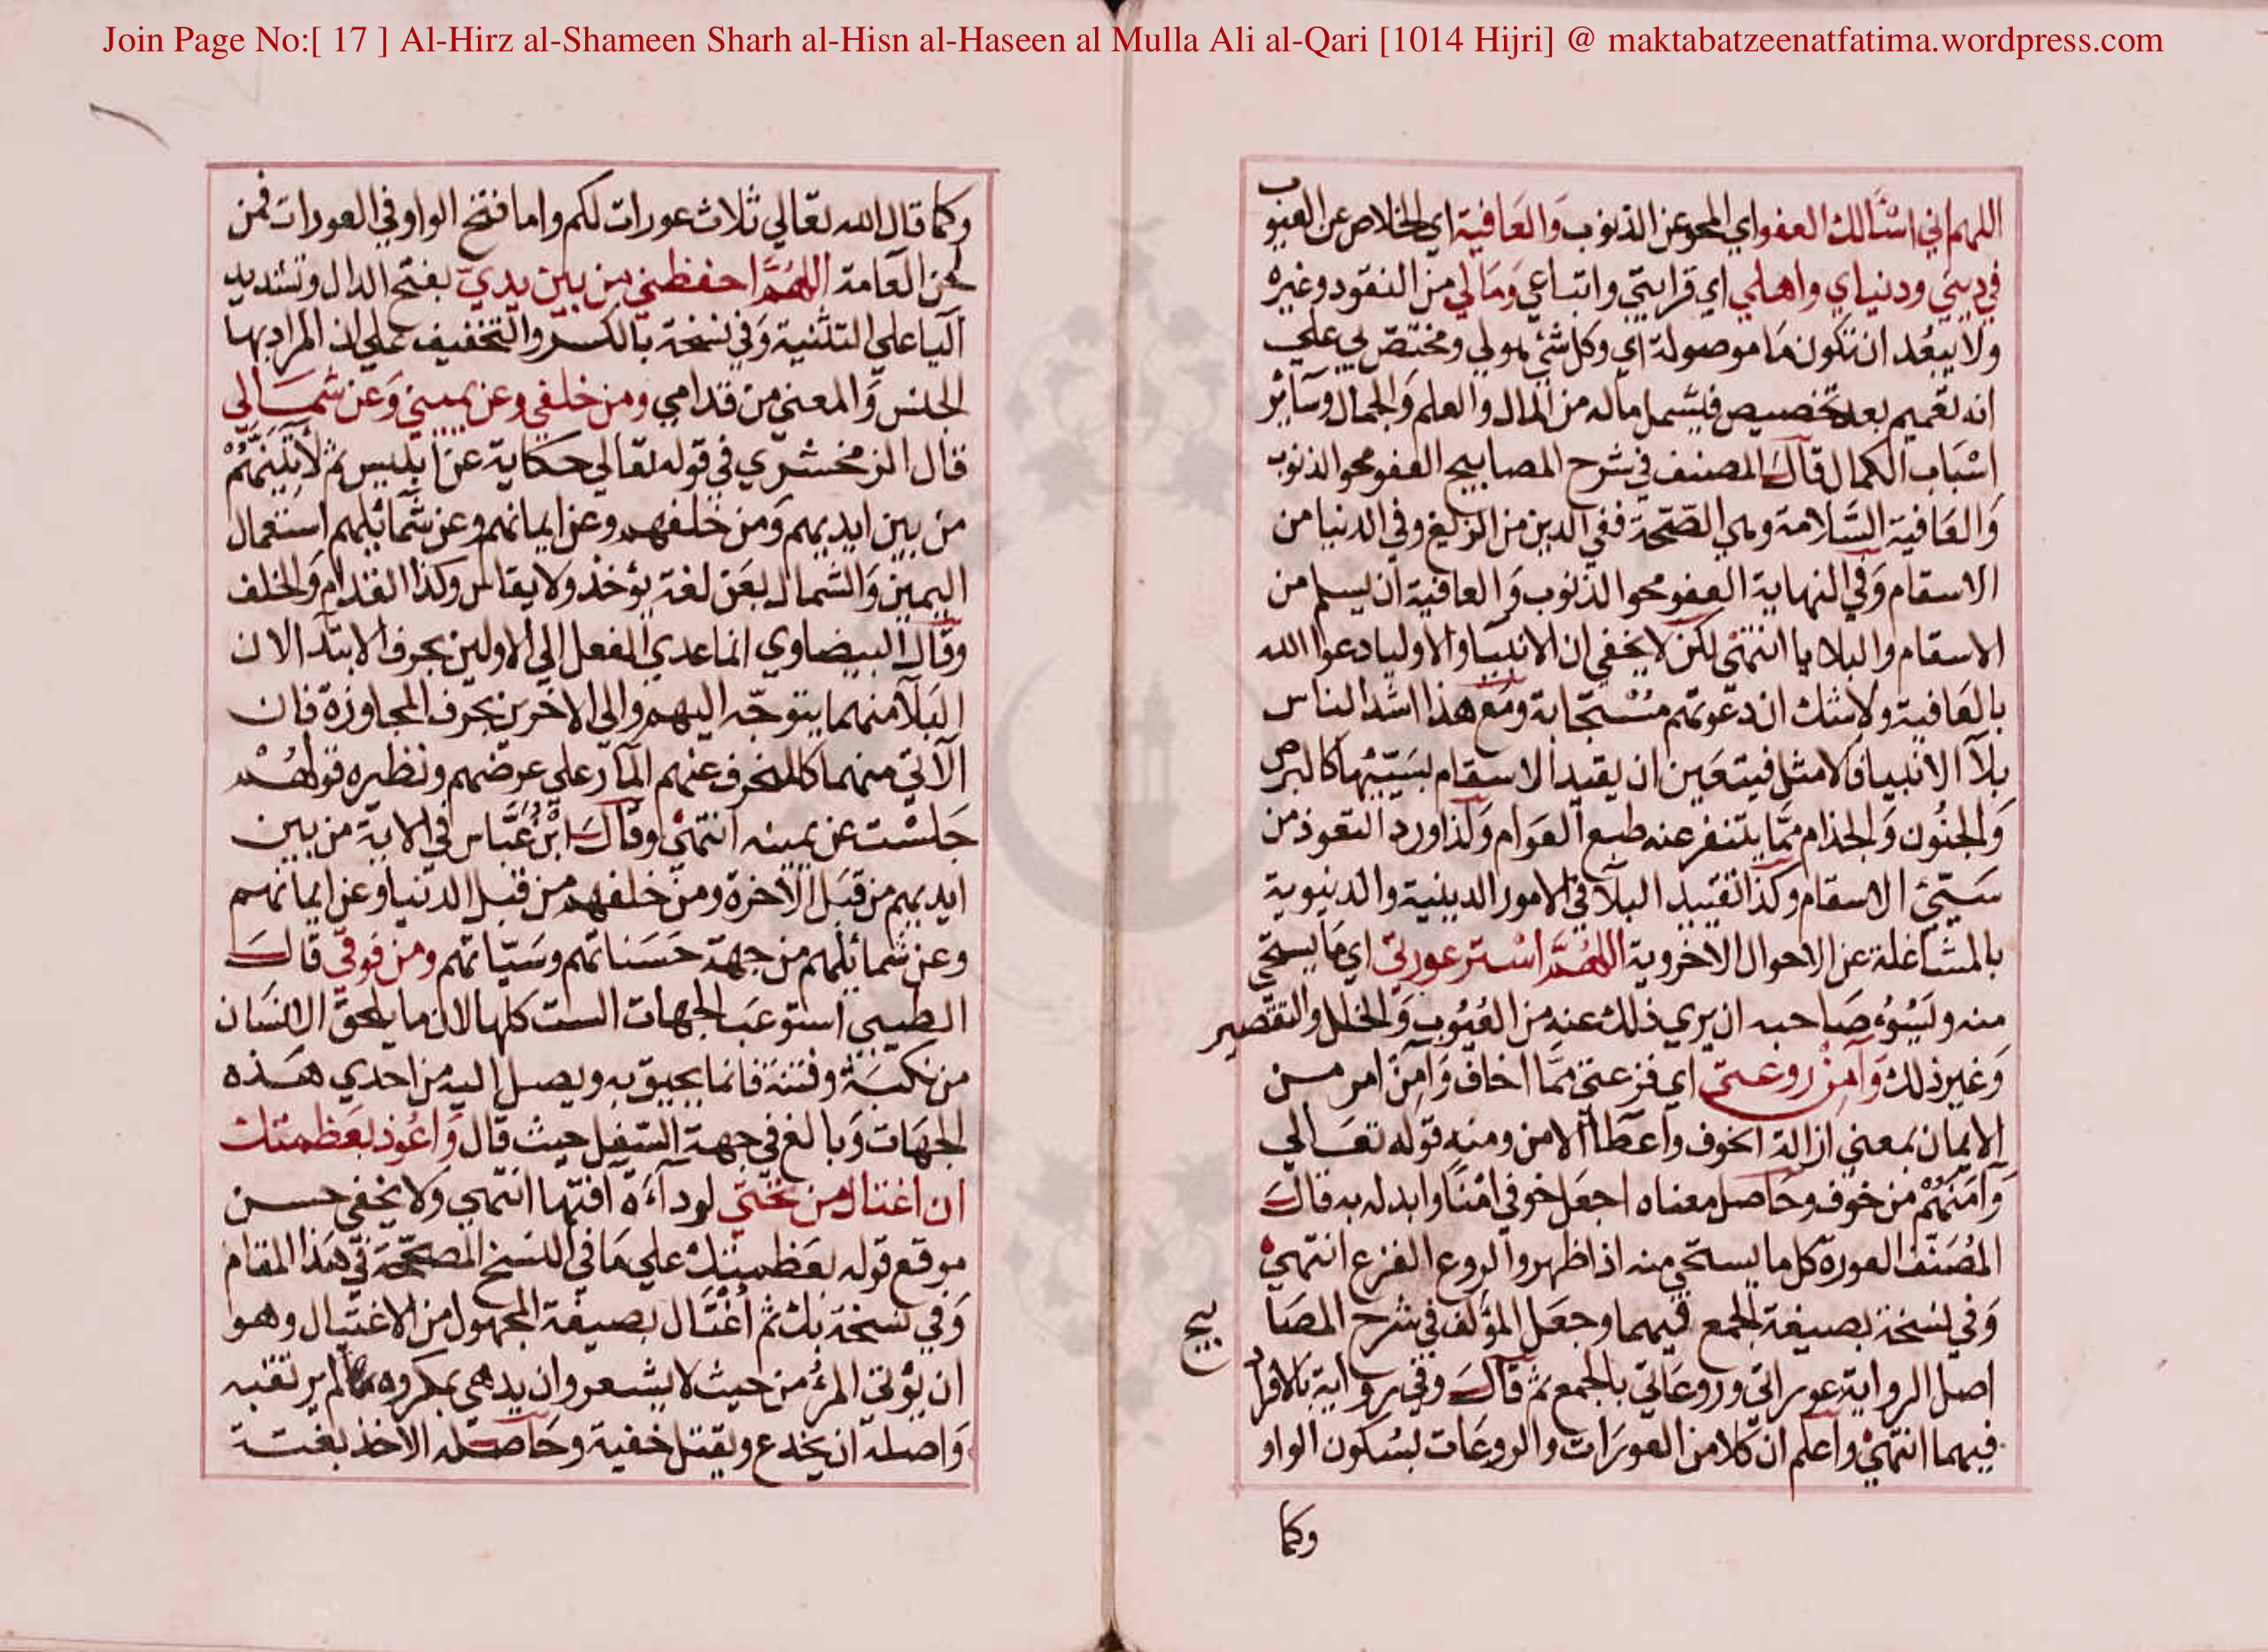 Join Page No:[ 17 ] Al-Hirz al-Shameen Sharh al-Hisn al-Haseen al Mulla Ali al-Qari [1014 Hijri] @ maktabatzeenatfatima.wordpress.com
اللهم اني اسْئَالك العفو اي المحو عن الذنوب وَالعَافية اي الخلاص عن العيوب
في ديني ودنياي واهلي اي قرابتي واتباعي وَمَالي من النقود وغيره
ولا يبعُد ان تكون مَا موصولة اي وكل شئ هو لي ومختصّ بي علي
انه تعميم بعد تخصيص فيشمل ماله من المال والعلم وَالجمال وسآئر
اسْبَاب الكمال قالَ المصنف في شرح المصابيح العفو محو الذنوب
وَالعَافية السَّلامة وهي الصّحّة ففي الدين من الزيغ وفي الدنيا من
الاسقام وَفي النهاية العفو محو الذنوب وَالعافية ان يسلم من
الاسقام والبلايا انتهيْ لكن لا يخفي ان الانبيا والاوليا دعوا الله
بالعَافية ولا شك ان دعوتهم مُسْتجَابة ومَع هذا اشد الناس
بلآ الانبيا فالامثل فيتعَين ان يقيد الاسقام بسَيّئها كالبرص
وَالجنُون وَالجذام ممَّا يتنفر عنه طبع العَوام وَلذا ورد التعوذ من
سَيّئ الاسقام وكذا تقييد البلآ في الامور الدينية والدنيوية
بالمشاغلة عن الاحوال الاخروية اللهُمَّ اسْتر عورتي اي مَا يستحي
منه ويَسُوءُ صَاحبه ان يري ذلك عنه من العُيُوب وَالخلل والتقصير
وَغير ذلك وَآمِنْ روعتي اي فزعتي ممَّا اخاف وَآمِنْ امر من
الايمان بمعني ازالة الخوف واعطآ الامن ومنه قوله تعَالي
وَآمَنَهُمْ من خوف وحَاصل معناه اجعَل خوفي امْنًا وابدله به قالَ
المُصَنّف العورة كل ما يستحي منه اذا ظهر والروع الفزع انتهيْ
وَفي نسخة بصيغة الجمع فيهما وجعَل المؤلف في شرح المصَابيح
اصل الرواية عوراتي وروعَاتي بالجمع ثم قالَ وفي رواية بالافراد
فيهما انتهيْ واعلم ان كلا من العورَات والروعَات بسُكون الواو
وكما
وكما قال الله تعَالي ثلاث عورات لكم واما فتح الواو في العورات فمن
لحن العَامة اللهُمَّ احفظني من بين يديَّ بفتح الدال وتشديد
اليا علي التثنية وَفي نسخة بالكسر والتخفيف علي ان المراد بها
الجنس وَالمعني من قدامي ومن خلفي وعن يميني وَعن شمَالي
قال الزمخشري في قوله تعَالي حكاية عن ابليس ثم لأتِيَنَّهُمْ
من بين ايديهم وَمن خلفهم وعن ايمانهم وعن شمآئلهم استعمال
اليمين وَالشمال بعَن لغة يؤخذ ولا يقاس وكذا القدام وَالخلف
وقال البيضاوي انما عدي الفعل الي الاولين بحرف الابتدآ لان
البَلآ منهما يتوجّه اليهم والي الاخرين بحرف المجاوزة فان
الآتي منهما كالمنحرف عنهم المآر علي عرضهم ونظيره قولهُمْ
جَلسْت عن يمينه انتهيْ وقالَ ابْنُ عَبَّاس في الاية من بين
ايديهم من قبَل الآخرة ومن خلفهم من قبل الدنيا وعن ايمانهم
وعن شمائلهم من جهة حَسَناتهم وسَيّاتهم ومن فوقي قالَ
الطيبي استوعَب الجهات الست كلها لان ما يلحق الانسَان
من نكبَة وفتنة فانما يحيق به ويصل اليه من احدي هَذه
الجهَات وَبالغ في جهة السّفل حيث قال وَاعُوذ بعَظمتك
ان اغتال من تحتيّ لردآءَة آفتها انتهي ولا يخفي حسن
موقع قوله بعَظمتك علي مَا في النسخ المصحّحَة في هَذا المقام
وَفي نسخة بك ثم أُغْتَال بصيغة المجهول من الاغتيال وهو
ان يؤتي المرءُ من حيث لا يشعر وان يدهي بمكروه لم يرتقبه
وَاصله ان يخدع ويقتل خفية وحَاصله الاخذ بغتة